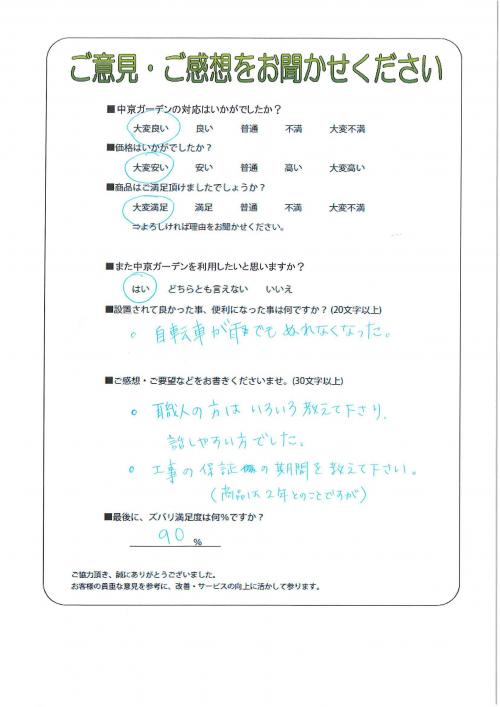 ご意見・ご感想をお聞かせください
■中京ガーデンの対応はいかがでしたか？
大変良い 良い 普通 不満 大変不満
■価格はいかがでしたか？
大変安い 安い 普通 高い 大変高い
■商品はご満足頂けましたでしょうか？
大変満足 満足 普通 不満 大変不満
⇒よろしければ理由をお聞かせください。
■また中京ガーデンを利用したいと思いますか？
はい どちらとも言えない いいえ
■設置されて良かった事、便利になった事は何ですか？(20文字以上)
。自転車が雨でもぬれなくなった。
■ご感想・ご要望などをお書きくださいませ。(30文字以上)
。職人の方はいろいろ教えて下さり、
話しやすい方でした。
。工事の保証の期間を教えて下さい。
(商品は2年とのことですが)
■最後に、ズバリ満足度は何％ですか？
90 %
ご協力頂き、誠にありがとうございました。
お客様の貴重な意見を参考に、改善・サービスの向上に活かして参ります。